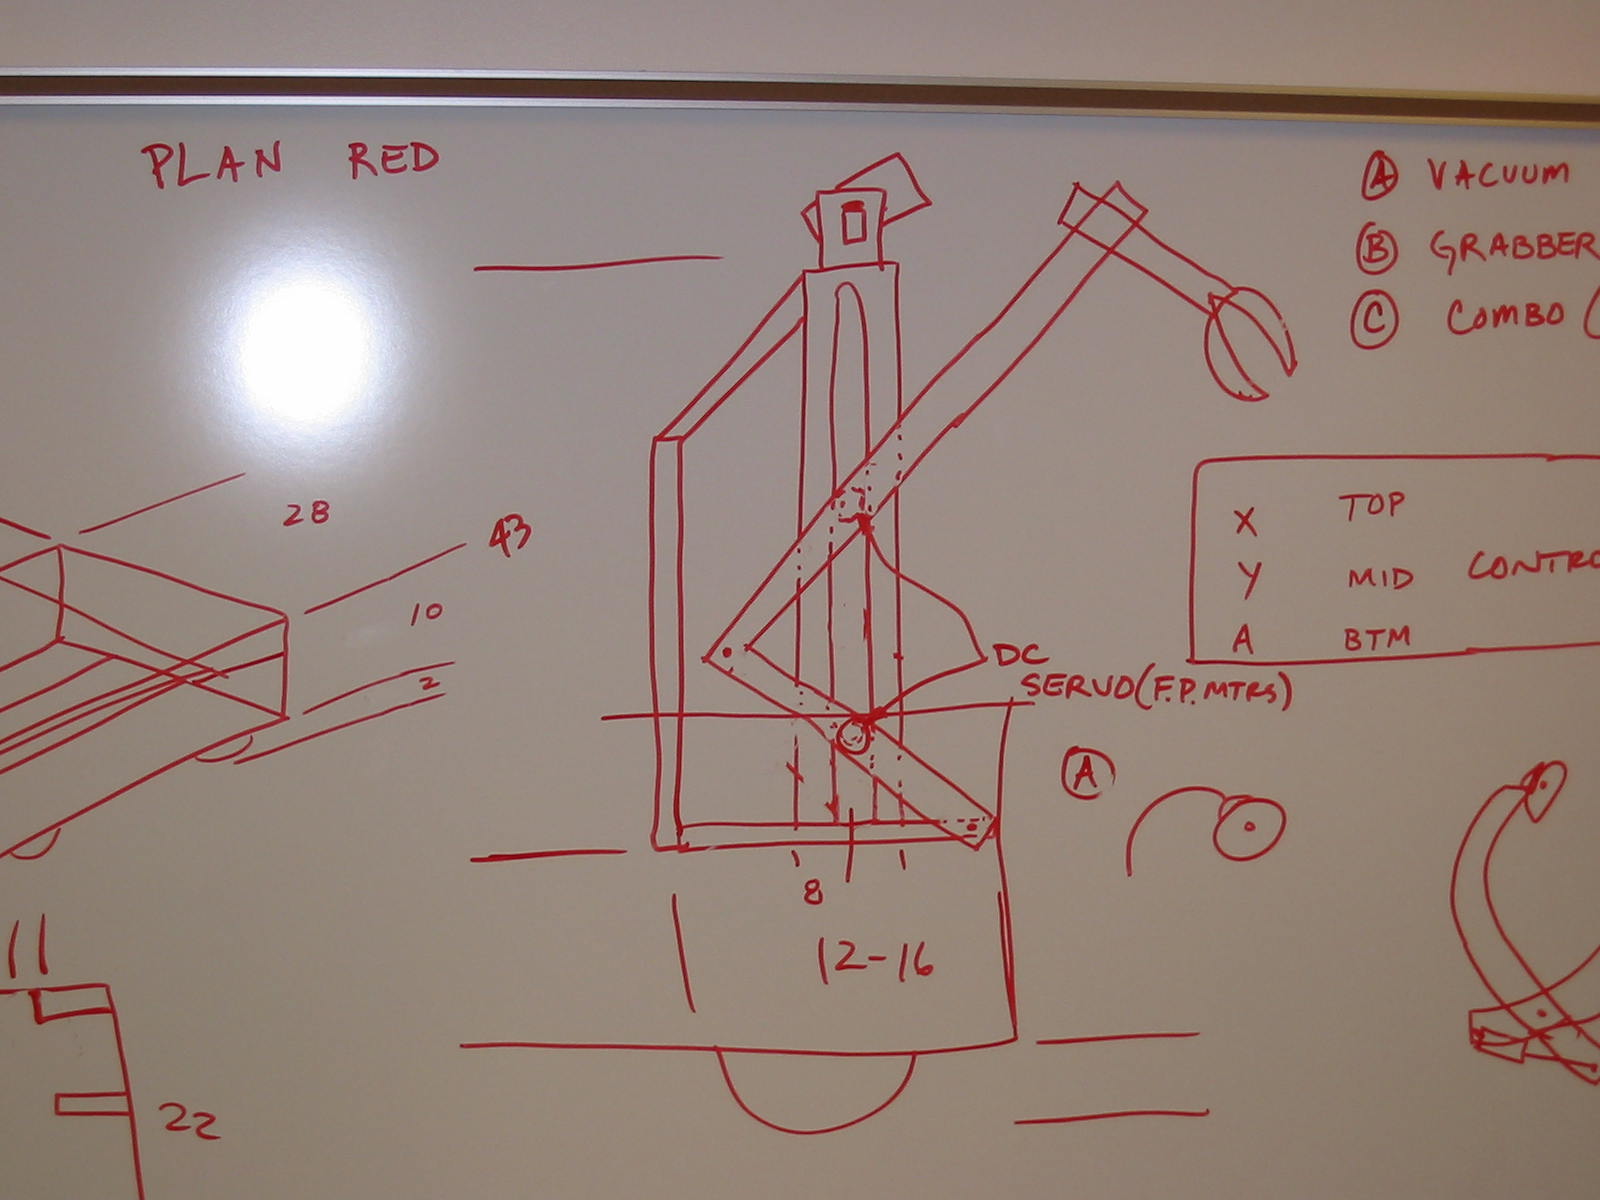 PLAN RED
A VACUUM
B GRABBER
C COMBO (
28
43
10
2
X TOP
Y MID CONTRO
A BTM
DC
SERVO (F.P. MTRS)
A
8
12-16
11
22